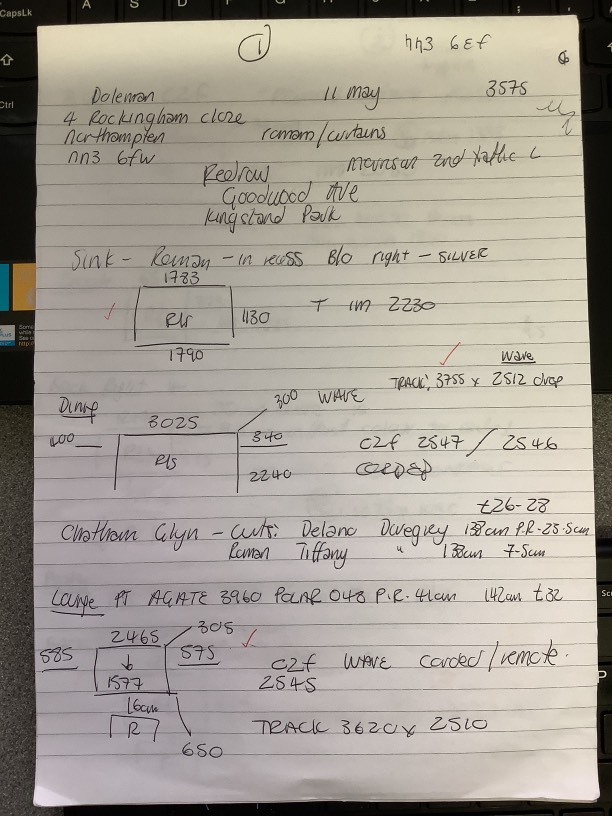 1
nn3 6Ef
Doleman 11 may 3575
4 Rockingham close
northampton romam/curtains
nn3 6fw
Redrow
Goodwood Ave
Kingsland Park
Sink - Roman - in recess Blo right - SILVER
1783
Rls 1130 T 1m 2230
1790
Wave
TRACK: 3755 x 2512 drop
300 WAVE
Dining 3025
400 340 c2f 2547 / 2546
Rls 2240 CORDED
£26-28
Chatham Glyn - curts: Delano Dovegrey 138cm P.R-23.5cm
Roman Tiffany " 138cm 7-5cm
Lounge PT AGATE 3960 POLAR 048 P.R. 41cm 142cm £32
2465 305
585 575
1577 c2f WAVE corded/remote.
2545
16cm
R TRACK 3620 x 2510
650